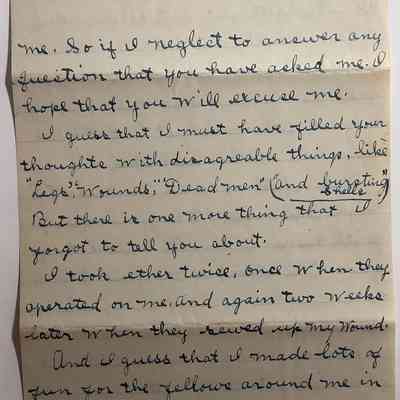 me. So if I neglect to answer any
question that you have asked me. I
hope that you will excuse me.
I guess that I must have filled your
thoughts with disagreable things, like
"Legs", "Wounds," "Dead men" (and bursting"
Shells
But there is one more thing that I
forgot to tell you about.
I took ether twice, once when they
operated on me, and again two weeks
later when they sewed up my wound.
And I guess that I made lots of
fun for the fellows around me in